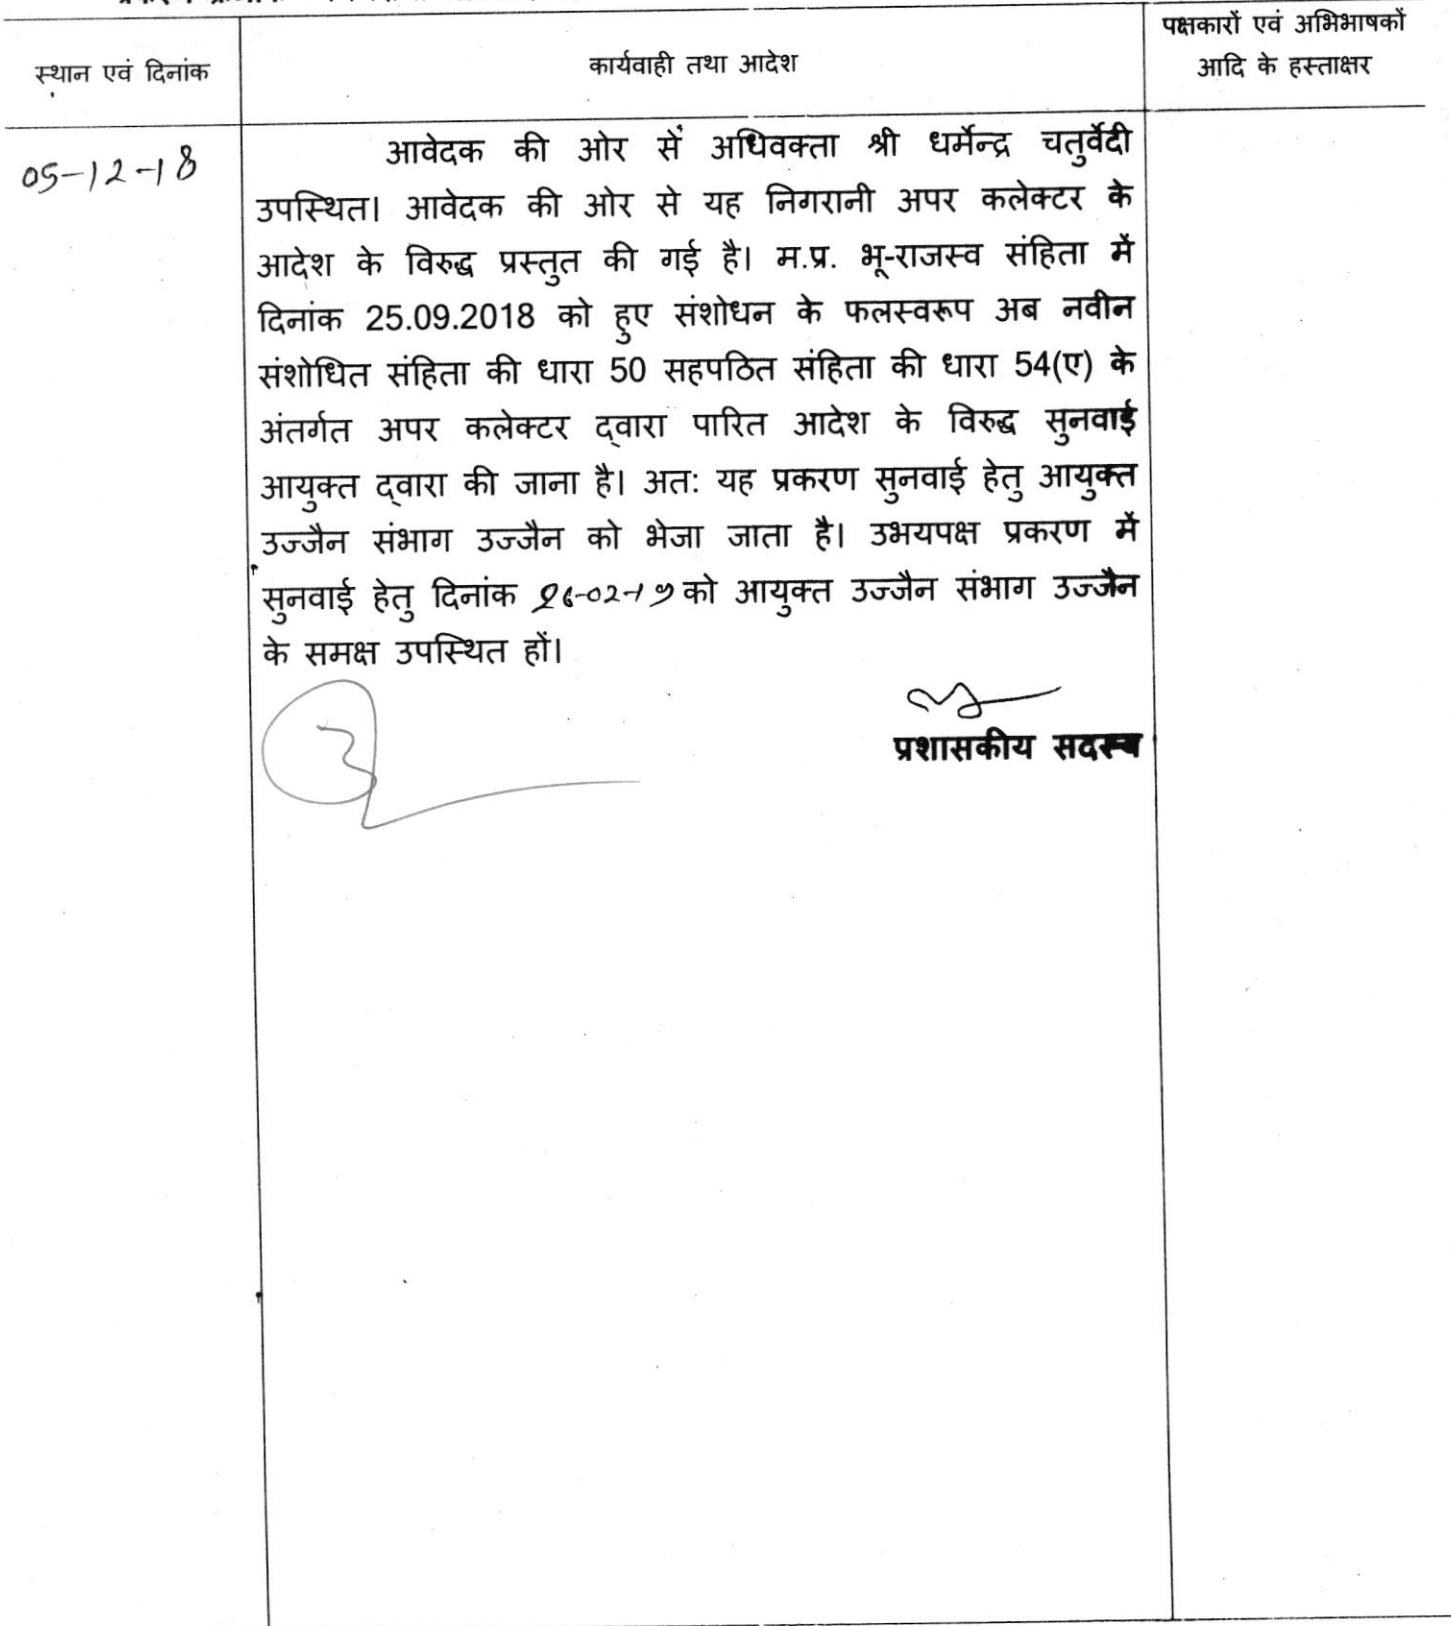 स्थान एवं दिनांक
कार्यवाही तथा आदेश
पक्षकारों एवं अभिभाषकों
आदि के हस्ताक्षर
05-12-18
आवेदक की ओर से अधिवक्ता श्री धर्मेन्द्र चतुर्वेदी
उपस्थित। आवेदक की ओर से यह निगरानी अपर कलेक्टर के
आदेश के विरुद्ध प्रस्तुत की गई है। म.प्र. भू-राजस्व संहिता में
दिनांक 25.09.2018 को हुए संशोधन के फलस्वरूप अब नवीन
संशोधित संहिता की धारा 50 सहपठित संहिता की धारा 54(ए) के
अंतर्गत अपर कलेक्टर द्वारा पारित आदेश के विरुद्ध सुनवाई
आयुक्त द्वारा की जाना है। अतः यह प्रकरण सुनवाई हेतु आयुक्त
उज्जैन संभाग उज्जैन को भेजा जाता है। उभयपक्ष प्रकरण में
सुनवाई हेतु दिनांक को आयुक्त उज्जैन संभाग उज्जैन
के समक्ष उपस्थित हों।
प्रशासकीय सदस्य